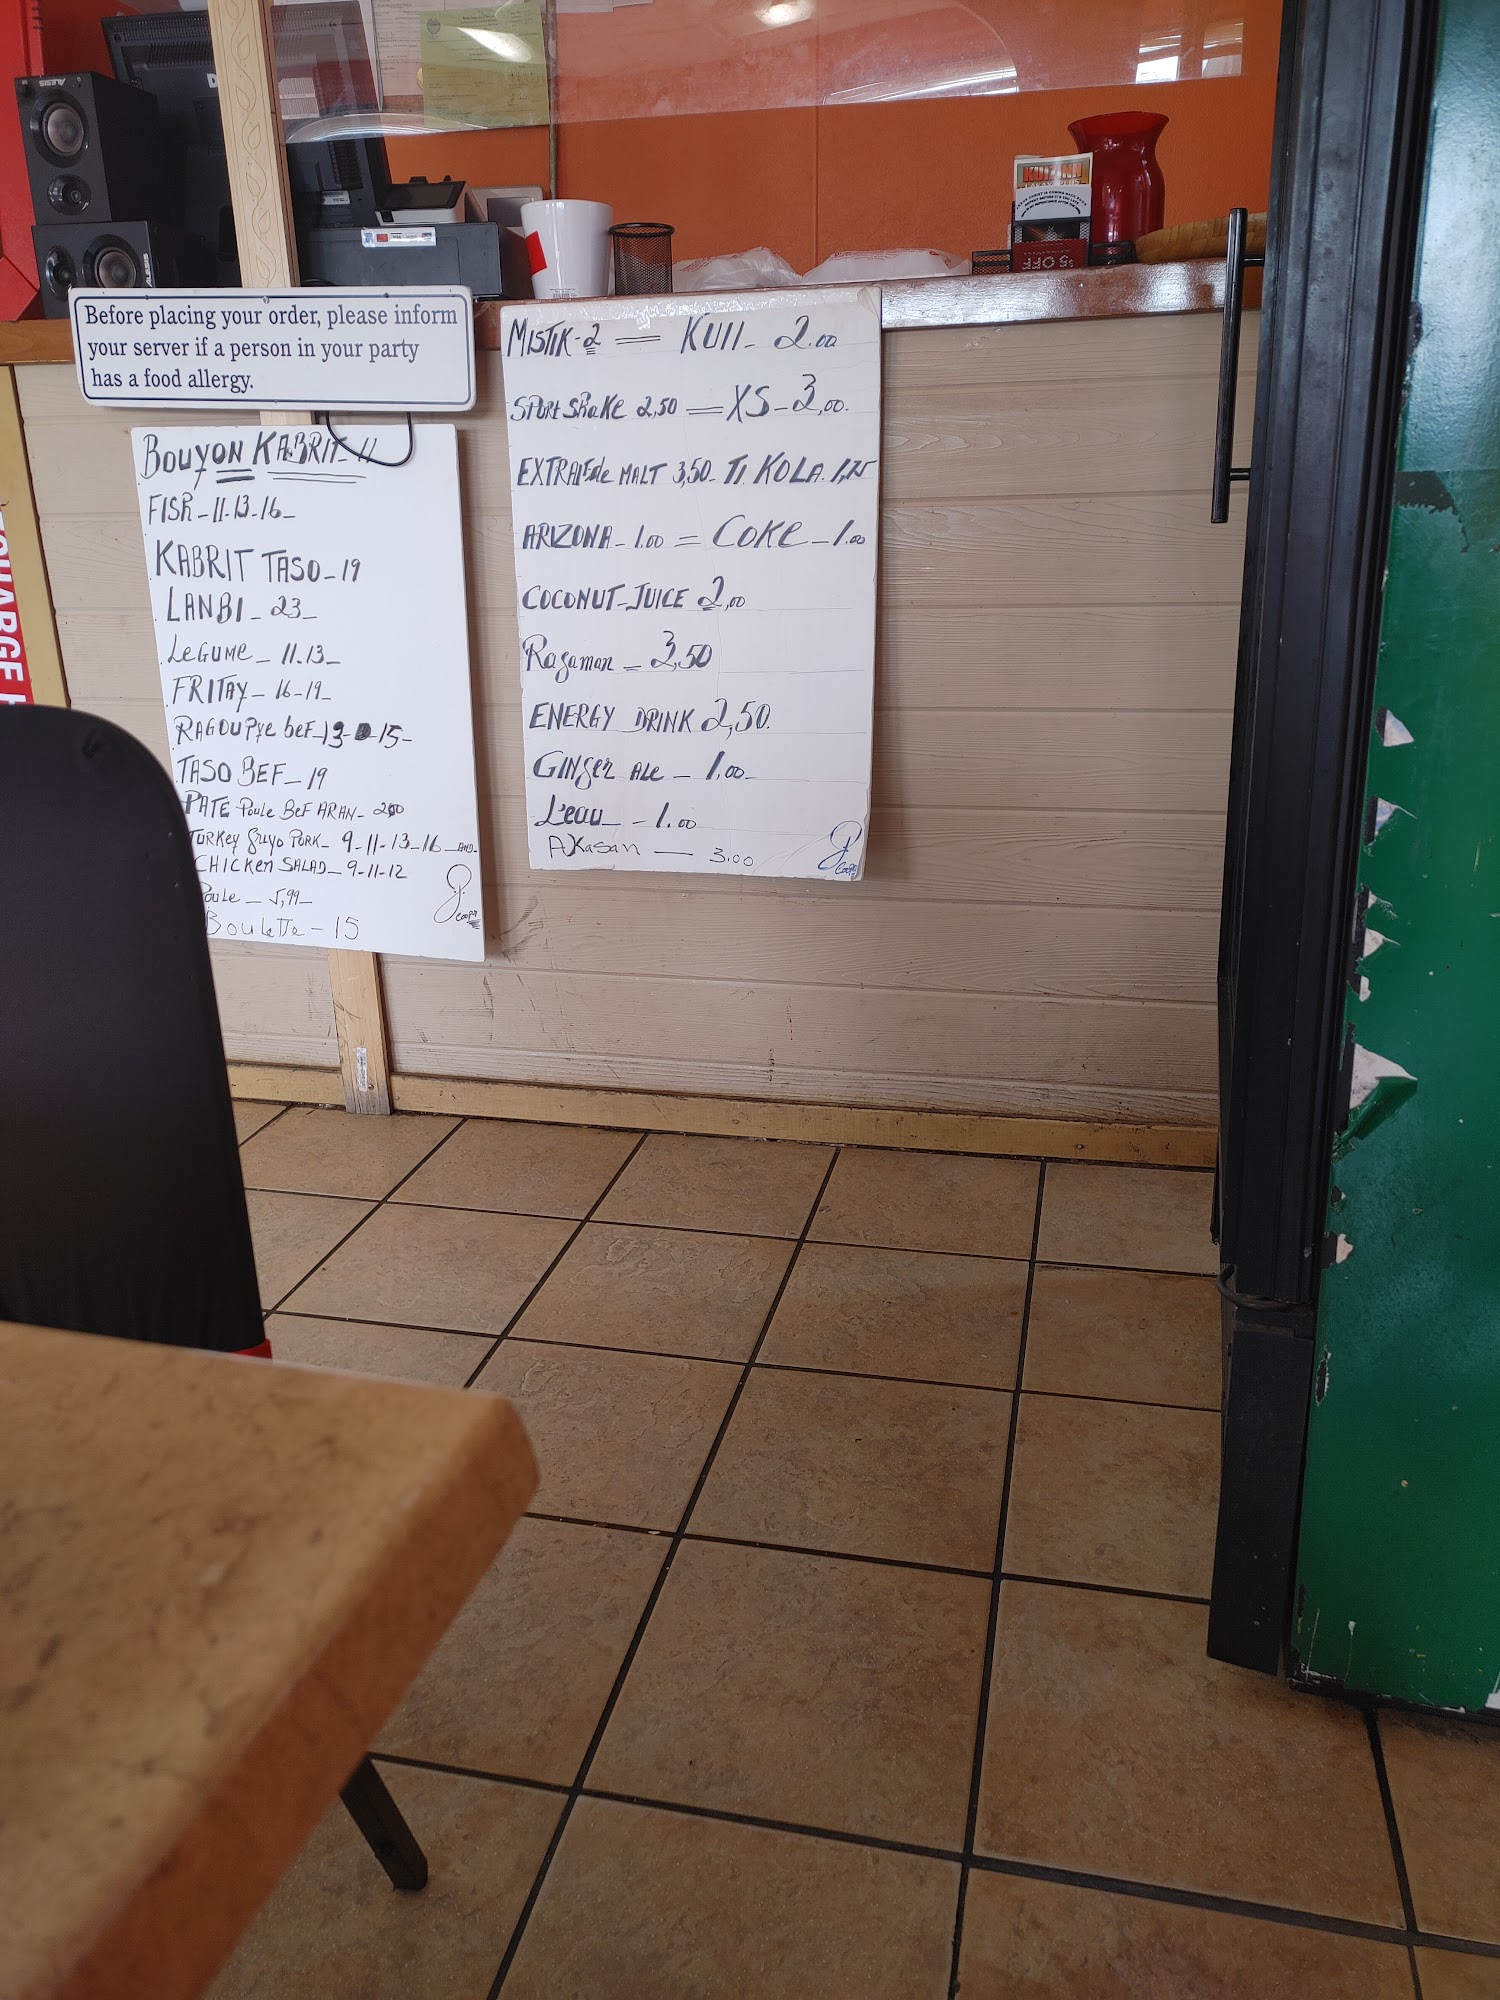 Before placing your order, please inform
your server if a person in your party
has a food allergy.
BOUYON KABRIT-11
FISH-11-13-16-
KABRIT TASO-19
LANBI-23-
LEGUME-11.13-
FRITAY-16-19-
RAGOU Pye bef-13-15-
TASO BEF-19
PATE-Poule BeF ARAN-200
TURKey Griyo PORK-9-11-13-16-AND-
CHICKEN SALAD-9-11-12
Poule-5,99-
Boulette-15
MISTIK-2 = KUII-2.00
SPORT SHAKE 2,50 = XS-3,00.
MALT 3,50-TI KOLA.1,75
ARIZONA-1.00 = COKE-1.00
COCONUT-JUICE 2,00
Ragaman-3,50
ENERGY DRINK 2,50.
GINger ALE-1.00-
L'eau-1.00
AKasan-3.00
ALESIS
ALESIS
$5 OFF